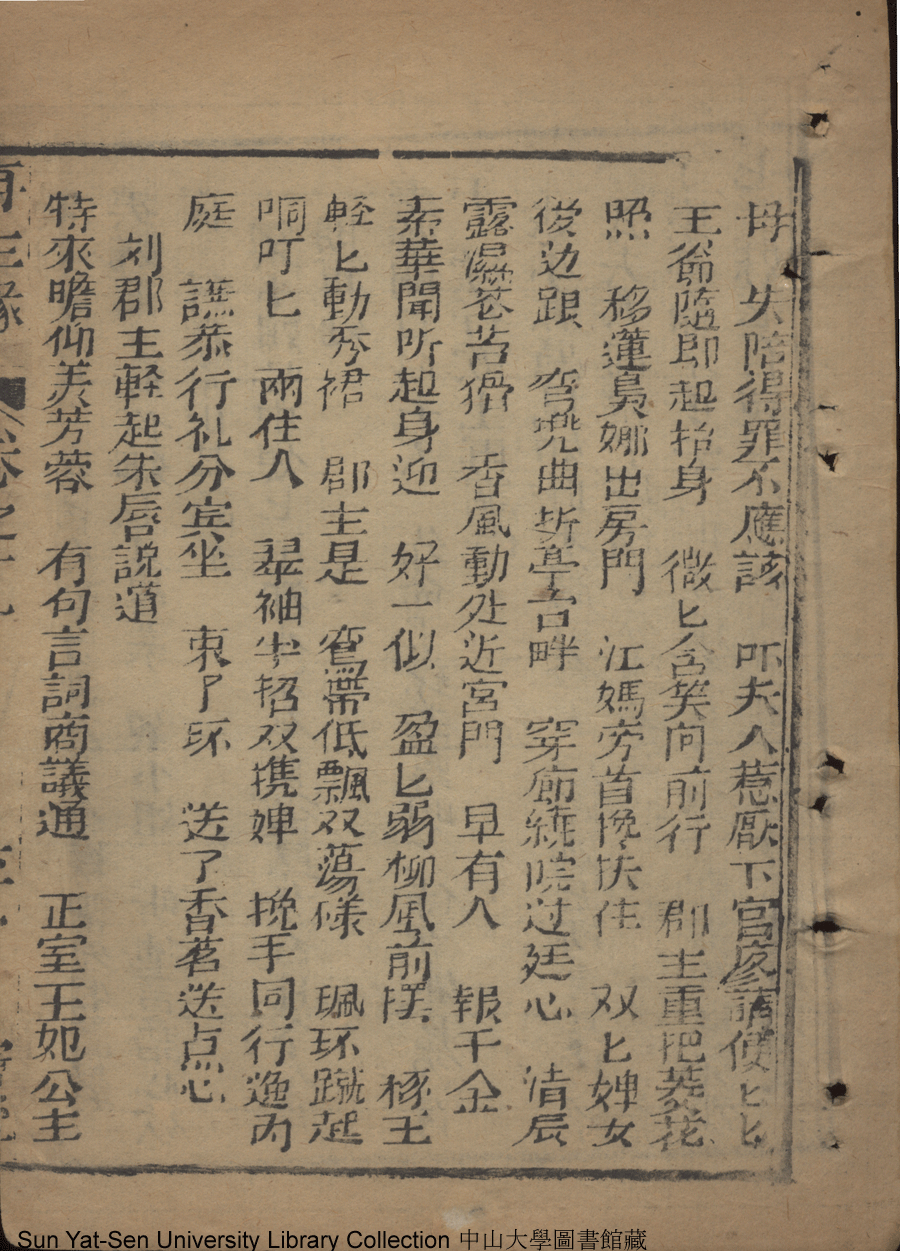 母 失陪得罪不應該 吓夫人惹厭下官麽請便匕匕
王爺隨即起抬身 微匕含笑向前行 郡主重把菱花
照 移蓮裊娜出房門 江媽旁首挽扶住 双匕婢女
後边跟 弯兜曲折亭台畔 穿廊繞院过廷心 清辰
露濕苍苔猾 香風動处近宮門 早有人 報千金
素華聞听起身迎 好一似 盈匕弱柳風前摆 椓王
輕匕動秀裙 郡主是 鸞帶低飄双蕩様 珮环蹴起
响叮匕 兩住人 翠袖半招双携婢 挽手同行進內
庭 謙恭行礼分宾坐 東了环 送了香茗送点心
刘郡主軽起朱唇説道
特來瞻仰美芳蓉 有句言詞商議通 正室王妃公主
再生緣 卷之十九